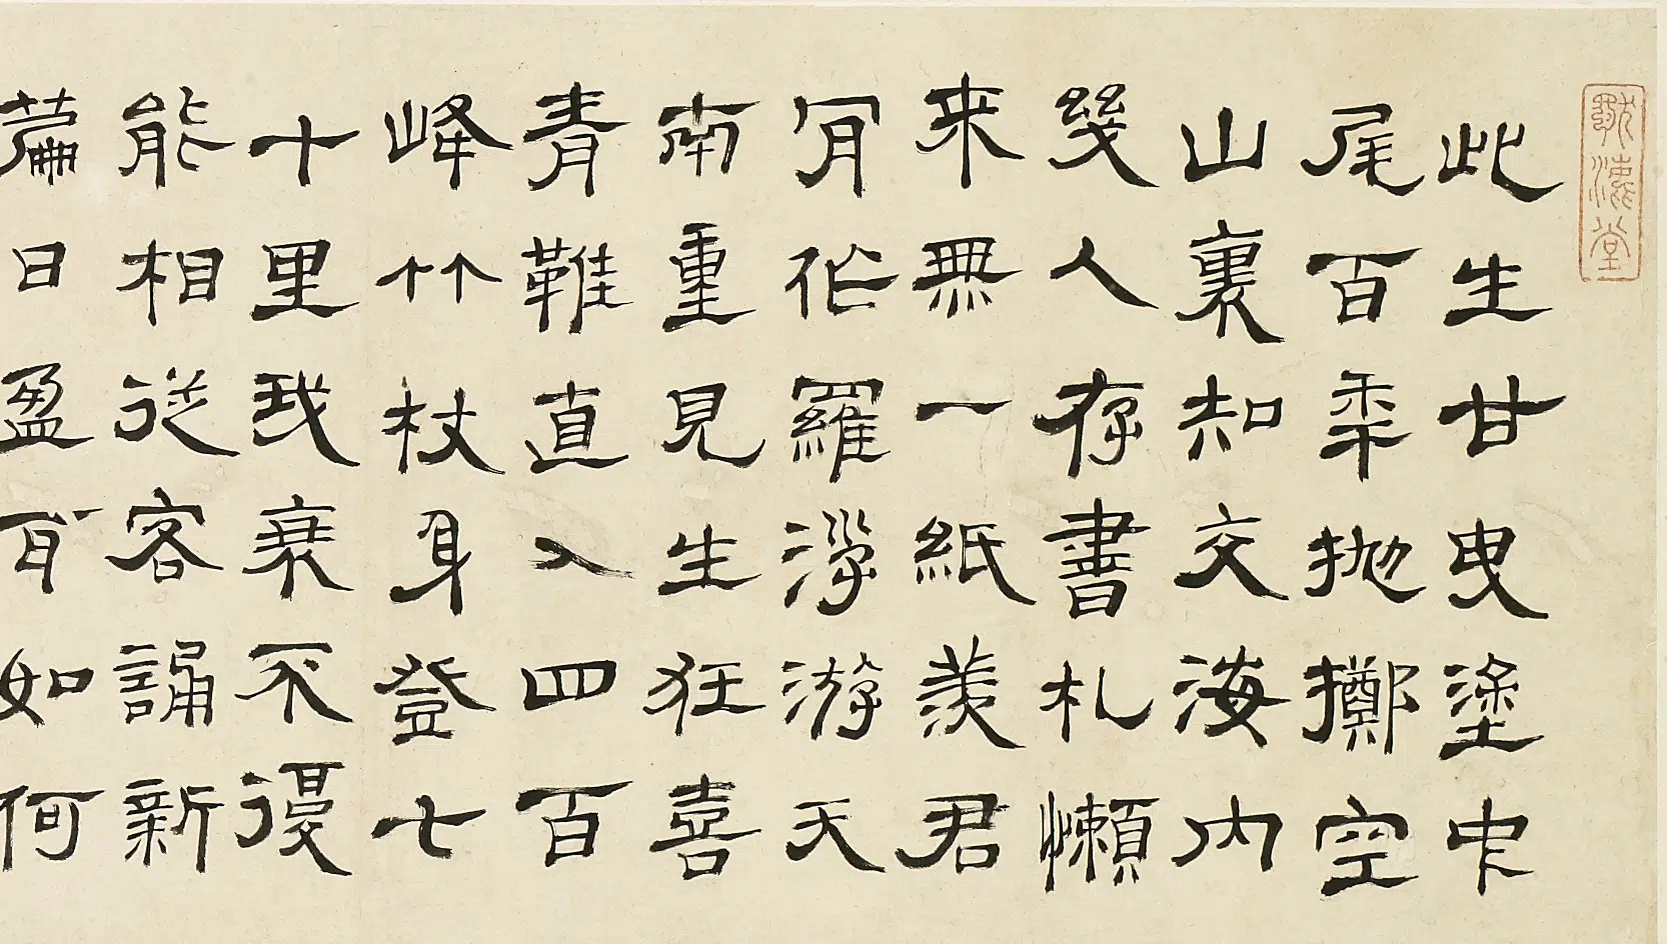 此生甘曳塗中
尾百秊拋擲空
山裏知交海内
幾人存書札懶
来無一紙羨君
肎作羅浮游天
南重見生狂喜
青鞵直入四百
峰竹杖身登七
十里我衰不復
能相從客誦新
篇日盈耳如何